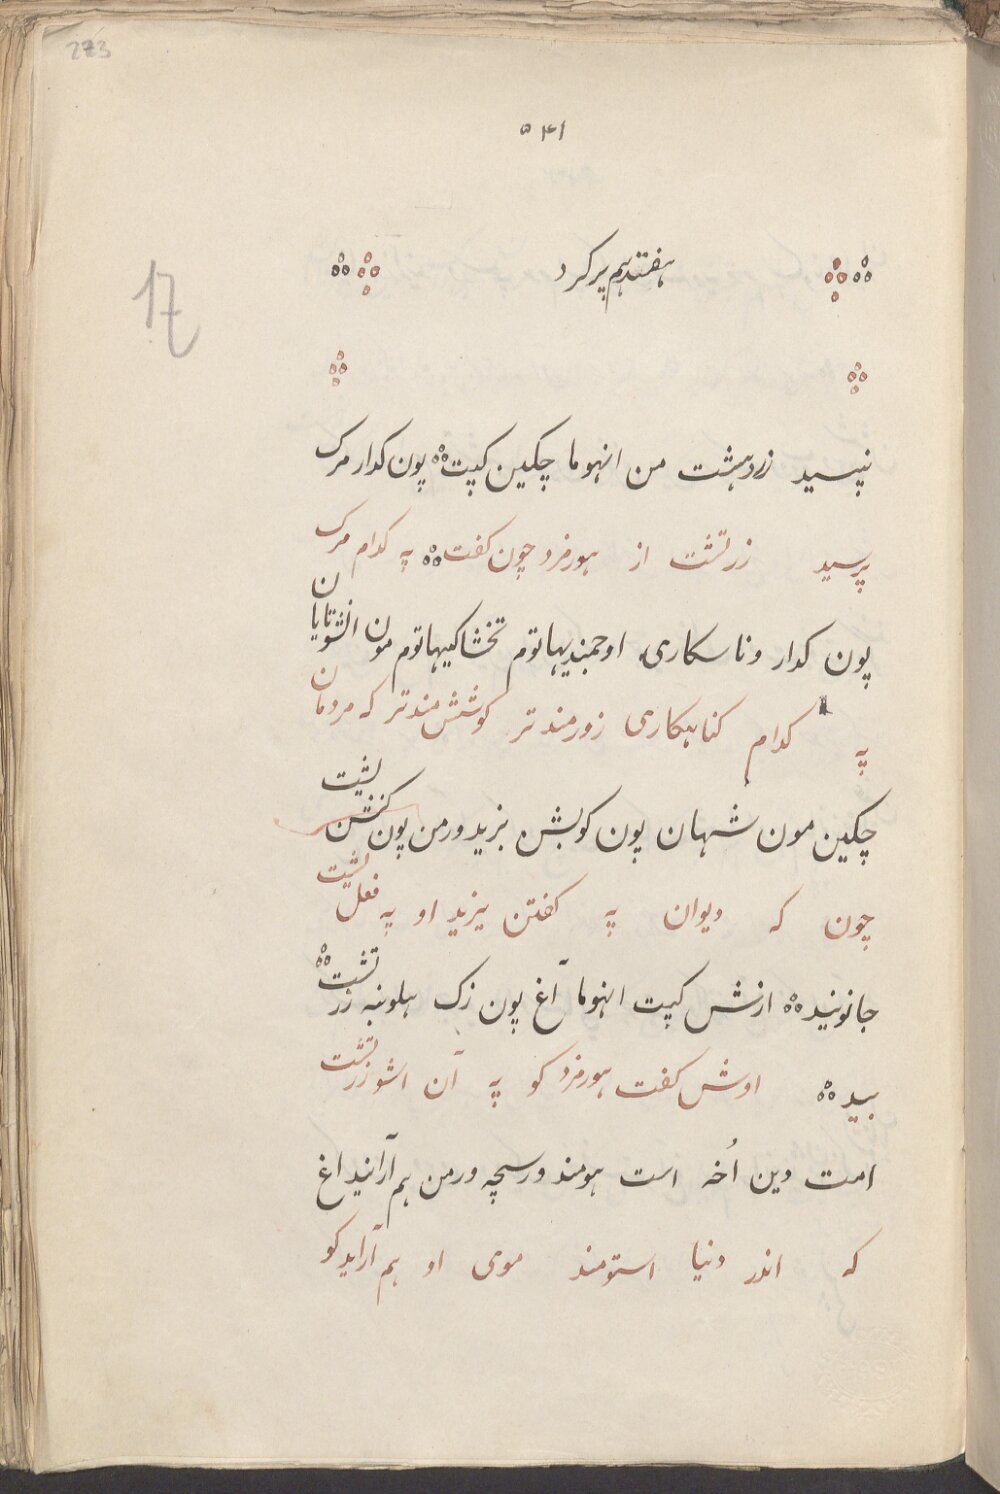 273
۵۴۱
هفتدهم پرکرد
17
پرسید زردهشت من انهوما چگین گپت پون کدار مرگ
پرسید زرتشت از هورمزد چون گفت په کدام مرگ
پون کدار وناسکاری اوجمندیهاتوم تخشاکیهاتوم مون انشوتایان
په کدام گناهکاری زورمندتر کوشش مندتر که مردمان
چگین مون شهان پون گوبشن یزید ورمن پون کنشن لشیت
چون که دیوان په گفتن یزید او په فعل لشیت
جانونید ازش گپت انهوما آغ پون زک هلوبنه زرتشت
بید اوش گفت هورمزد کو په آن اشو زرتشت
امت دین اُخه است هومند ورسچه ورمن هم آرانید اغ
که اندر دنیا استومند موی او هم آراید کو